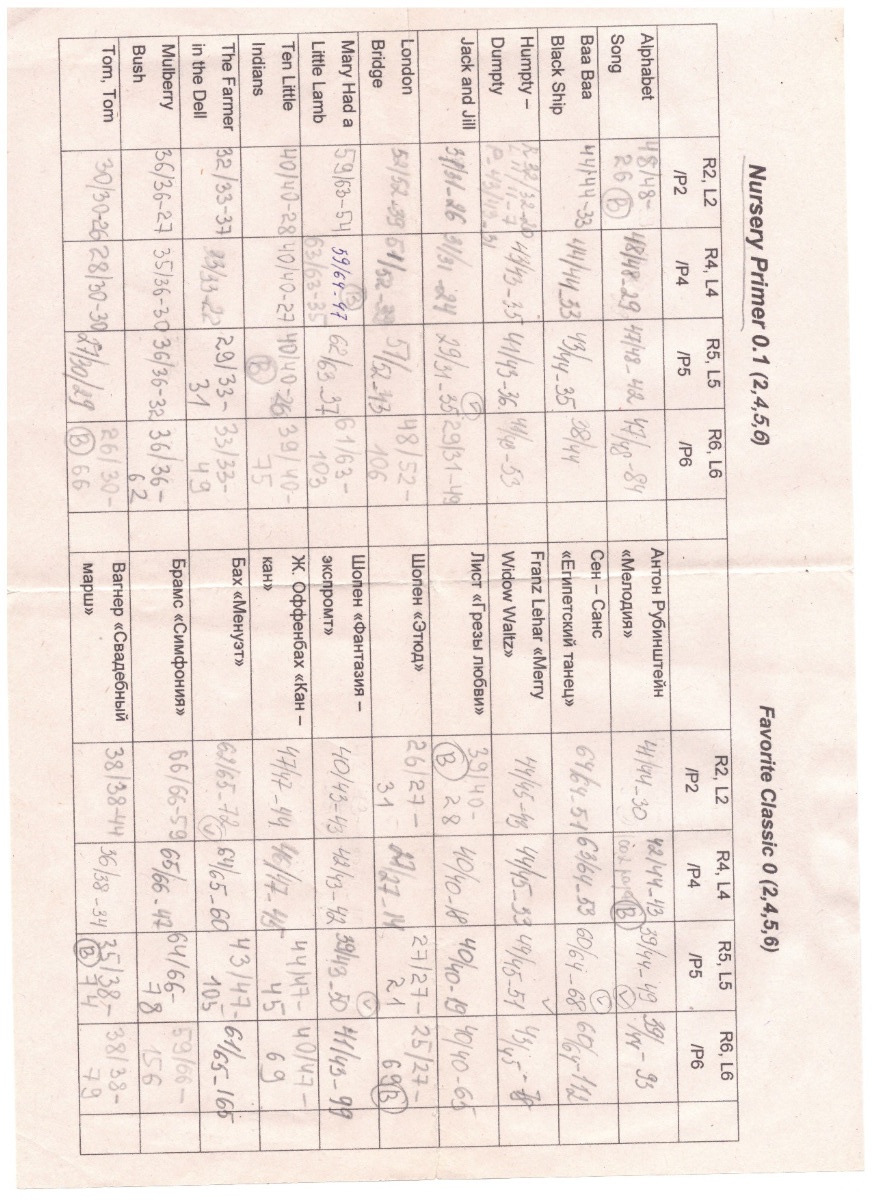 Nursery Primer 0.1 (2,4,5,6)
R2, L2 /P2
R4, L4 /P4
R5, L5 /P5
R6, L6 /P6
Alphabet Song
48/48-26 (B)
48/48-29
47/48-42
47/48-84
Baa Baa Black Ship
44/44-33
44/44-33
43/44-35
38/44
Humpty – Dumpty
43/43-35
41/43-36
Jack and Jill
31/31-26
31/31-24
29/31-35
29/31-49
London Bridge
52/52-39
51/52
51/52-43
48/52-106
Mary Had a Little Lamb
59/63-54
59/64-47
63/63-35
62/63-37
61/63-103
Ten Little Indians
40/40-28
40/40-27
40/40-26 (B)
39/40-75
The Farmer in the Dell
32/33-37
33/33-22
29/33-31
33/33-49
Mulberry Bush
36/36-27
35/36-30
36/36-32
36/36-62
Tom, Tom
30/30-26
28/30-30
27/30/29
26/30-66 (B)
Favorite Classic 0 (2,4,5,6)
R2, L2 /P2
R4, L4 /P4
R5, L5 /P5
R6, L6 /P6
Антон Рубинштейн «Мелодия»
41/44-30
42/44-43 (B)
39/44-49
39/44-93
Сен – Санс «Египетский танец»
64/64-51
63/64-53
60/64-68
60/64-112
Franz Lehar «Merry Widow Waltz»
44/45-49
44/45-33
44/45-51
43/45-78
Лист «Грезы любви»
39/40-28 (B)
40/40-18
40/40-19
40/40-65
Шопен «Этюд»
26/27-31
27/27-14
27/27-21
25/27-69 (B)
Шопен «Фантазия – экспромт»
40/43-43
42/43-42
39/43-50
41/43-99
Ж. Оффенбах «Кан – кан»
47/47-44
46/47-45
44/47-45
40/47-69
Бах «Менуэт»
62/65-72
64/65-60
43/47-105
61/65-165
Брамс «Симфония»
66/66-59
65/66-47
64/66-78
59/66-156
Вагнер «Свадебный марш»
38/38-44
36/38-34
35/38-74 (B)
38/38-79